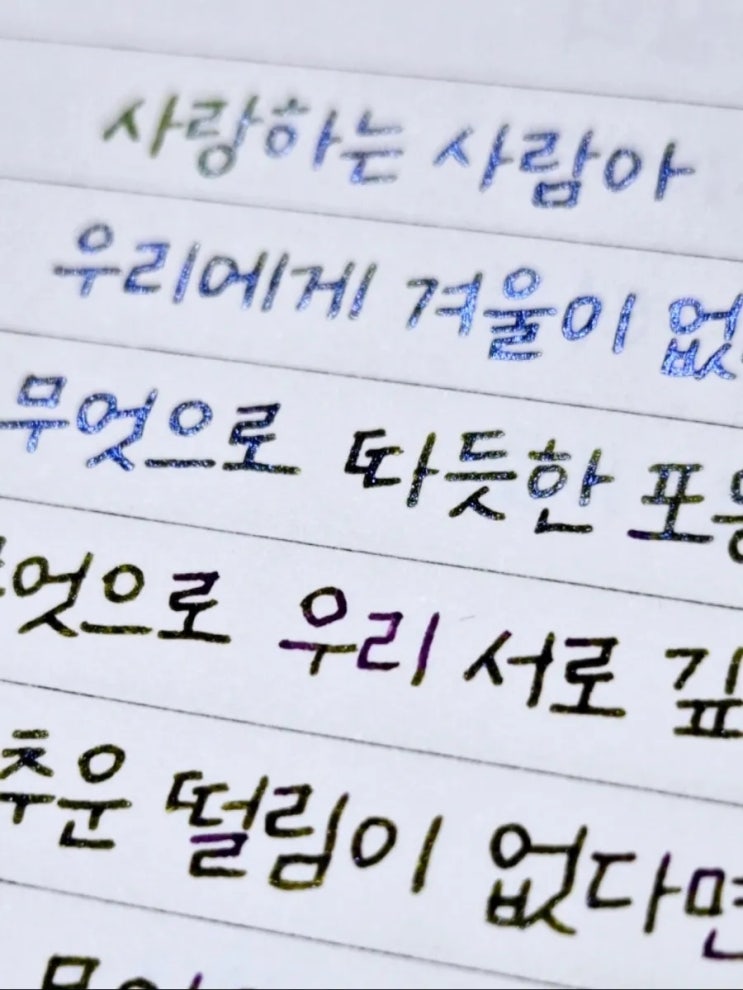 사랑하는 사람아
우리에게 겨울이 없
무엇으로 따뜻한 포
엇으로 우리 서로 깊
추운 떨림이 없다면